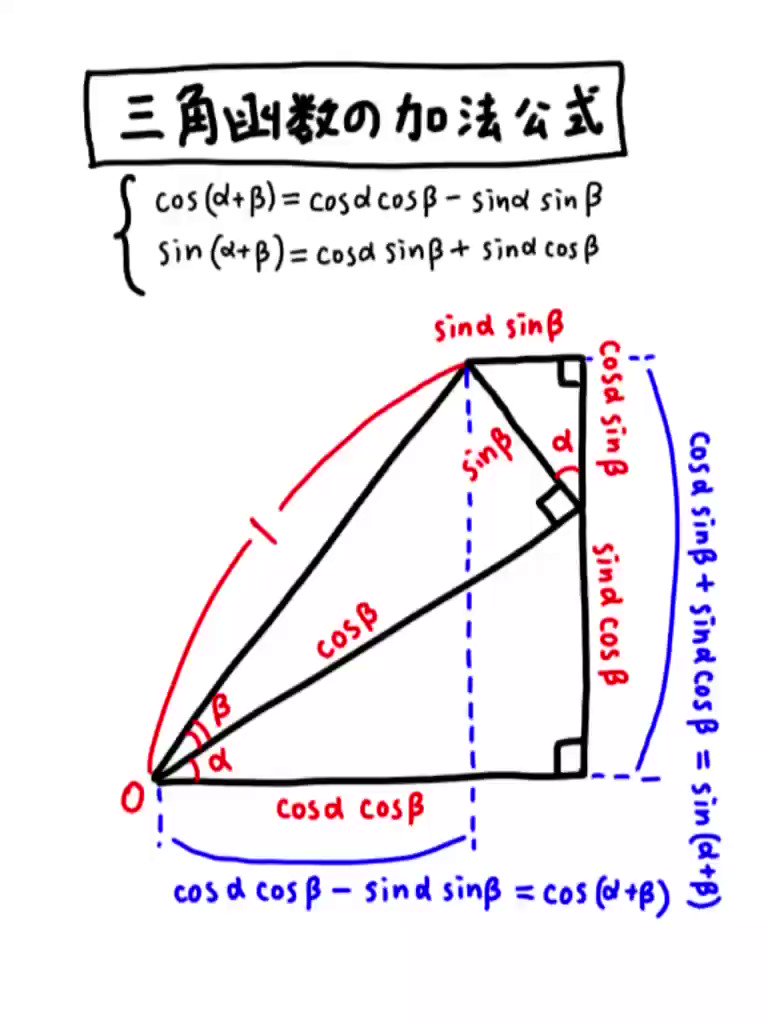 三角函数の加法公式
cos(α+β)=cosαcosβ-sinαsinβ
sin(α+β)=cosαsinβ+sinαcosβ
sinαsinβ
cosαsinβ
α
sinβ
1
cosαsinβ+sinαcosβ=sin(α+β)
sinαcosβ
cosβ
β
α
O
cosαcosβ
cosαcosβ-sinαsinβ=cos(α+β)